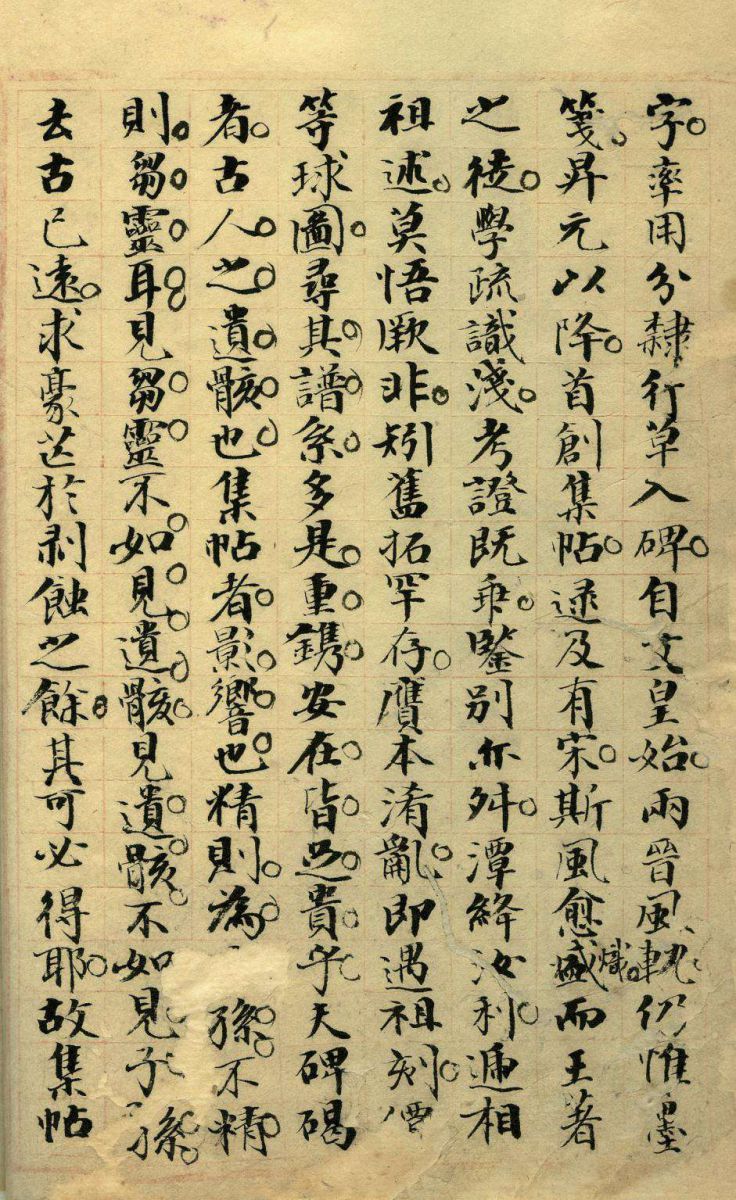 字率用分隸行草入碑自文皇始兩晉風軌仍惟墨
箋昇元以降首創集帖逮及有宋斯風愈盛熾而王著
之徒學疏識淺考證既乖鑒別亦舛潭絳汝利遞相
祖述莫悟厥非矧舊拓罕存贋本淆亂即遇祖刻價
等球圖尋其譜系多是重鐫安在皆足貴乎夫碑碣
者古人之遺骸也集帖者影響也精則為孫不精
則芻靈耳見芻靈不如見遺骸見遺骸不如見子孫
去古已遠求豪芒於剥蝕之餘其可必得耶故集帖